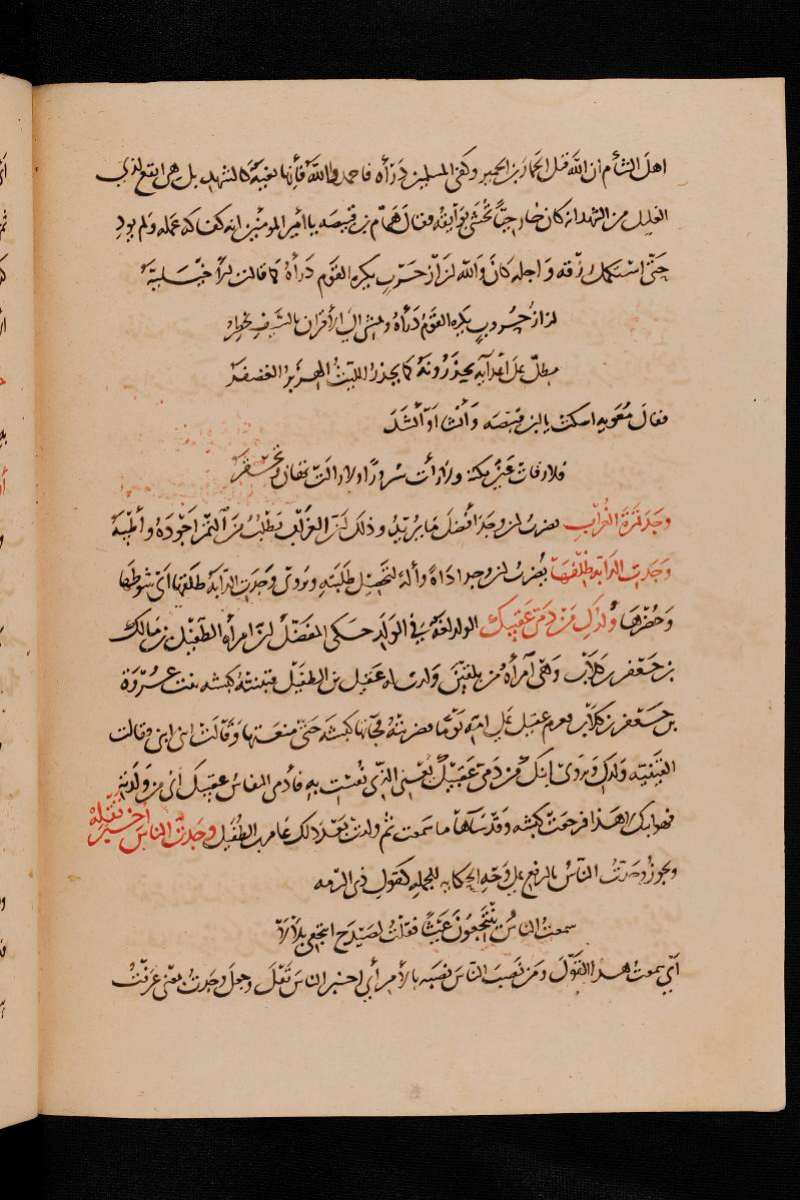 اهل الشأم ان الله قتل الحمار بن الحمير وكفى المسلمين درأه فاحمدوا الله فأنها نعبة كالشهد بل هي انقع لذي
الغليل من الشهد انه كان خارجيا تخشى بوايقه فقال همام بن قبيصه يا امير المومنين انه كفاكه عمله ولم يود
حتى استكمل رزقه واجله كان والله لزاز حرب يكره القوم درأه كما قالت ليلى
لزاز حروب يكره القوم درأه ويمشى الى الأقران بالسيف يخطر
مطل على اعدآيه يحذرونه كما يحذر الليث الهزبر الغضنفر
فقال معويه اسكت يا ابن قبيصه وأنشا او أنشد
فلا رقات عين بكته ولا رأت سرورا ولا زالت تهان وتحقر
وجد تمرة الغراب يضرب لمن وجد أفضل ما يريد وذلك لان الغراب يطلب من التمر اجوده وأطيبه
وجدت الدابة ظلفها يضرب لمن وجد اداة وألة لتحصيل طلبته ويروى وجدت الدابة طلقها اى شوطها
وحضرها ولدك من دمى عقبيك الولد لغة فى الولد حكى المفضل لان امرأه الطفيل بن مالك
بن جعفر بن كلاب وهى امرأة من بلقين ولدت له عقيل بن الطفيل فتبنته كبشه بنت عروة
بن جعفر بن كلاب فعرم عقيل على امه يوما فضربته فجآتها كبشه حتى منعتها وقالت ابنى ابنى فقالت
القينيه ولدك ويروى ابنك من دمى عقبيك يعنى الذى نفست به فأدمى النفاس عقبيك اى من ولدته
فهو ابنك لا هذا فرجعت كبشه وقد سآها ما سمعت ثم ولدت بعد ذلك عامر بن الطفيل وجدت الناس اخبر تقله
ويجوز وجدت الناس بالرفع على وجه الحكايه للجمله كقول ذى الرمه
سمعت الناس ينتجعون غيثا فقلت لصيدح انتجعى بلالا
اى سمعت هذا القول ومن نصب الناس نصبه بالأمر أي اخبر الناس تقل وجعل وجدت بمعنى عرفت